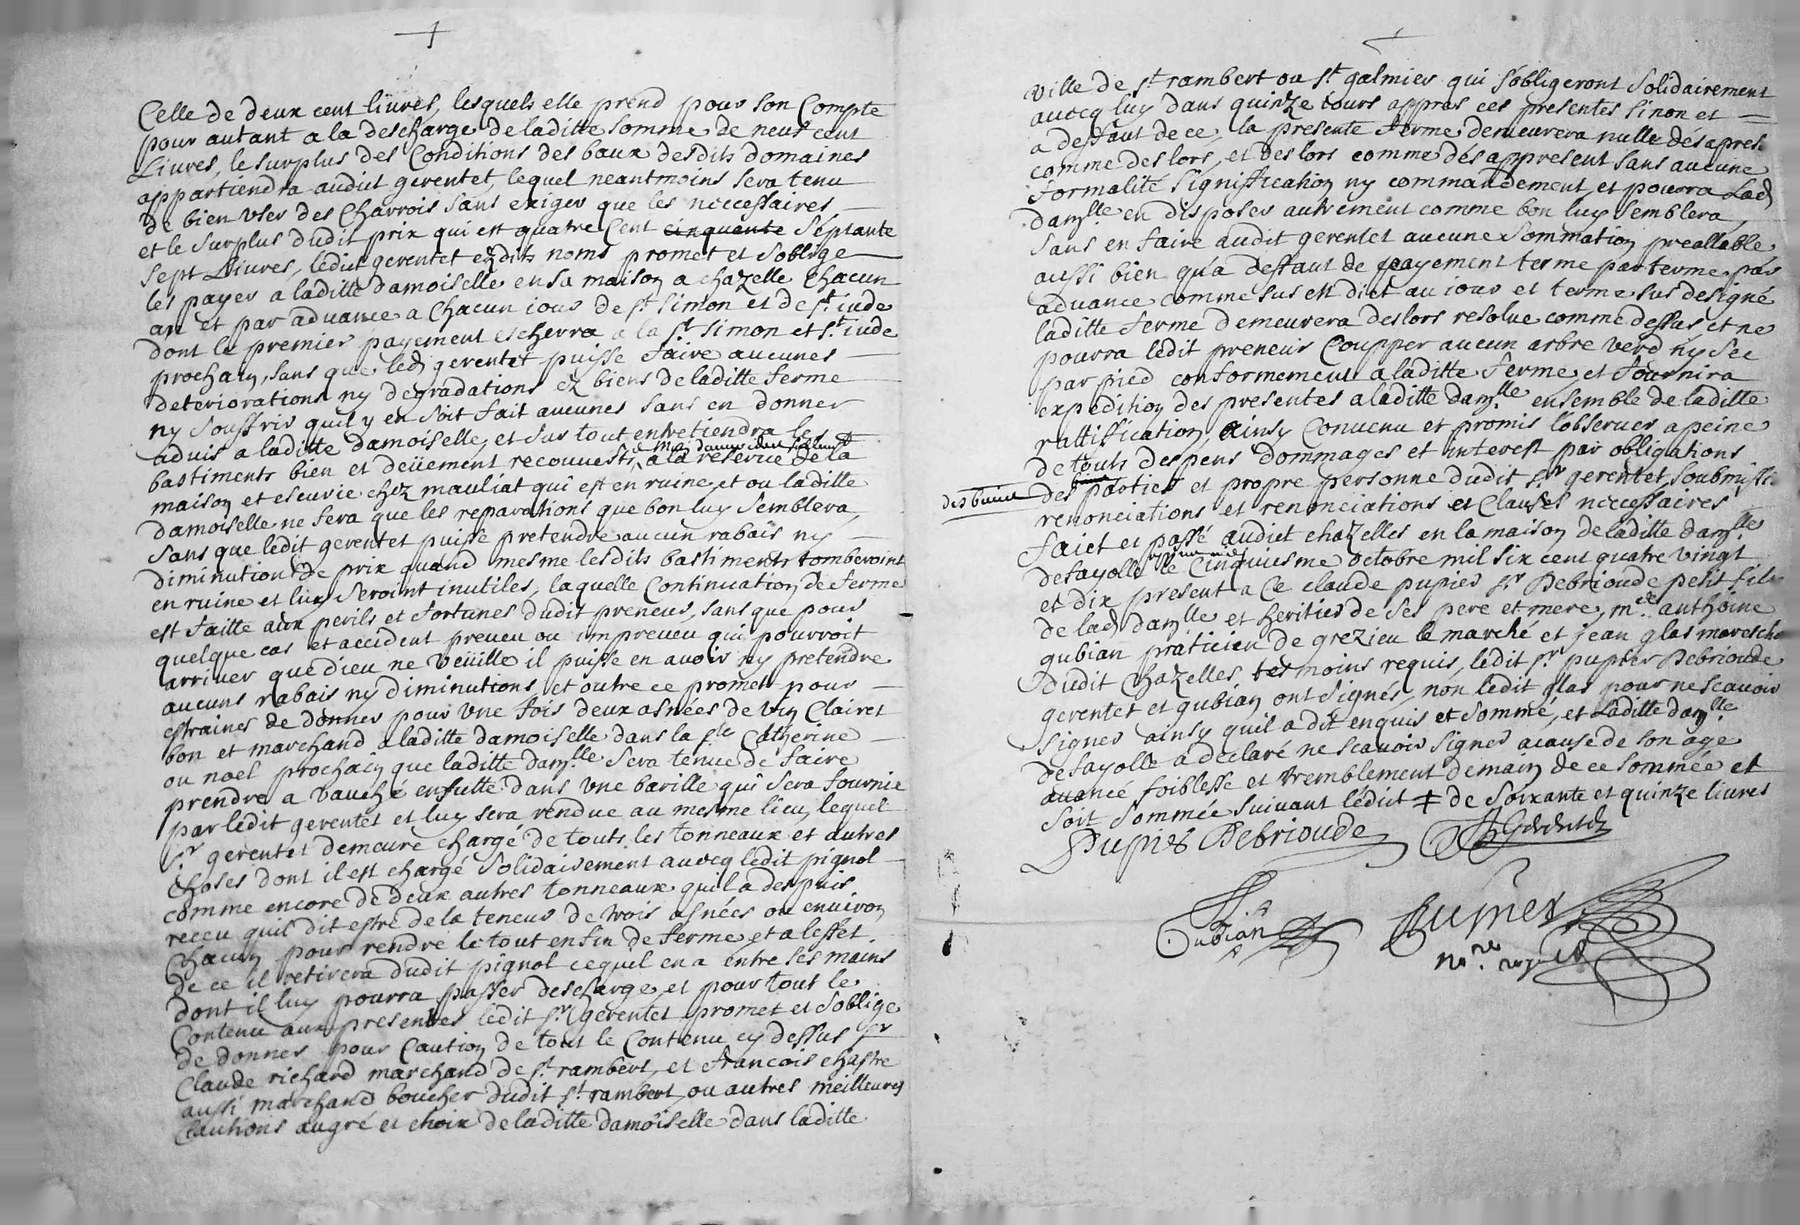 Celle de deux cent liures, lesquels elle prend pour son Compte
pour autant a la descharge de laditte somme de neuf cent
Liures, le surplus des Conditions des baux desdits domaines
appartiendra audict gerentet, lequel neantmoins sera tenu
de bien vser des Charrois sans exiger que les neccessaires
et le surplus dudit prix qui est quatre Cent cinquante septante
sept Liures, ledict gerentet esdits noms promet et soblige
les payer a laditte damoiselle en sa maison a chazelle chacun
an et par aduance a Chacun iour de st. simon et de st. iude
dont le premier payement escherra a la st. simon et st. iude
prochain, sans que led gerentet puisse faire aucunes
deteriorations ny degradations ez biens de laditte ferme
ny souffrir quil y en soit fait aucunes sans en donner
aduis a laditte damoiselle, et sur tout entretiendra les
bastiments bien et deüement recouuerts, a la reserue de la
maison et escurie chez mauliat qui est en ruine et ou laditte
damoiselle ne fera que les reparations que bon luy semblera,
sans que ledit gerentet puisse pretendre aucun rabais ny
diminution de prix quand mesme lesdits bastiments tomberoint
en ruine et luy seroint inutiles, laquelle Continuation de ferme
est faitte aux perils et fortunes dudit preneur, sans que pour
quelque cas et accident preueu ou impreueu qui pourroit
arriuer que dieu ne veüille il puisse en auoir ny pretendre
aucuns rabais ny diminutions, et outre ce promet pour
estraines de donner pour vne fois deux asnées de vin Clairet
bon et marchand a laditte damoiselle dans la ste Catherine
ou noel prochain que laditte damlle sera tenue de faire
prendre a vauché enfutté dans vne barille qui sera fournie
par ledit gerentet et luy sera rendue au mesme lieu, lequel
sr. gerentet demeure chargé de touts les tonneaux et autres
choses dont il est chargé solidairement auecq ledit pignol
comme encore de deux autres tonneaux quil a despuis
receu quil dit estre de la teneur de trois asnées ou enuiron
Chacun pour rendre le tout en fin de ferme et a leffet
de ce il retirera dudit pignol cequil en a entre ses mains
dont il luy pourra passer descharge, et pour tout le
Contenu aux presentes ledit sr. gerentet promet et soblige
de donner pour Caution de tout le Contenu cy dessus sr
Claude richard marchand de st. rambert, et francois chastre
aussi marchand boucher dudit st. rambert, ou autres meilleures
Cautions au gré et choix de laditte damoiselle dans laditte
ville de st. rambert ou st. galmier qui s'obligeront solidairement
auecq luy dans quinze iours appres ces presentes sinon et
a deffaut de ce, la presente ferme demeurera nulle dés apres
comme des lors, et des lors comme dés appresent sans aucune
formalité signiffication ny commandement, et pourra Lad
damlle en disposer autrement comme bon luy semblera
sans en faire audit gerentet aucune sommation preallable
aussi bien qua deffaut de payement terme par terme, par
aduance comme sus est dict au iour et terme sus designé
laditte ferme demeurera des lors resolue comme dessus, et ne
pourra ledit preneur Coupper aucun arbre verd ny sec
par pied conformement a laditte ferme et fournira
expedition des presentes a laditte damlle ensemble de laditte
rattiffication, Ainsy Conuenu et promis l'obseruer a peine
de touts despens dommages et interest par obligations
des parties et propre personne dudit sr gerentet, soubmissi
renonciations et renonciations et Clauses neccessaires
faict et passé audict chazelles en la maison de laditte damlle
defayolle le cinquiesme octobre mil six cent quatre vingt
et dix present a Ce claude pupier sr Debrioude petit fils
de lad damlle et heritier de ses pere et mere, me anthoine
gubian praticien de grezieu le marché et jean glas maresch
dudit Chazelles, tesmoins requis, ledit sr pupier Debrioude
gerentet et gubian ont signés, non ledit glas pour ne scauoir
signer ainsy quil a dit enquis et sommé, et laditte damlle
defayolle a declaré ne scauoir signer a cause de son age
auancé foiblesse et tremblement de main de ce sommée et
soit sommée suiuant lédict ‡ de soixante et quinze liures
Pupier Debrioude
Gerentet
Gubian
Pupier
nore royal